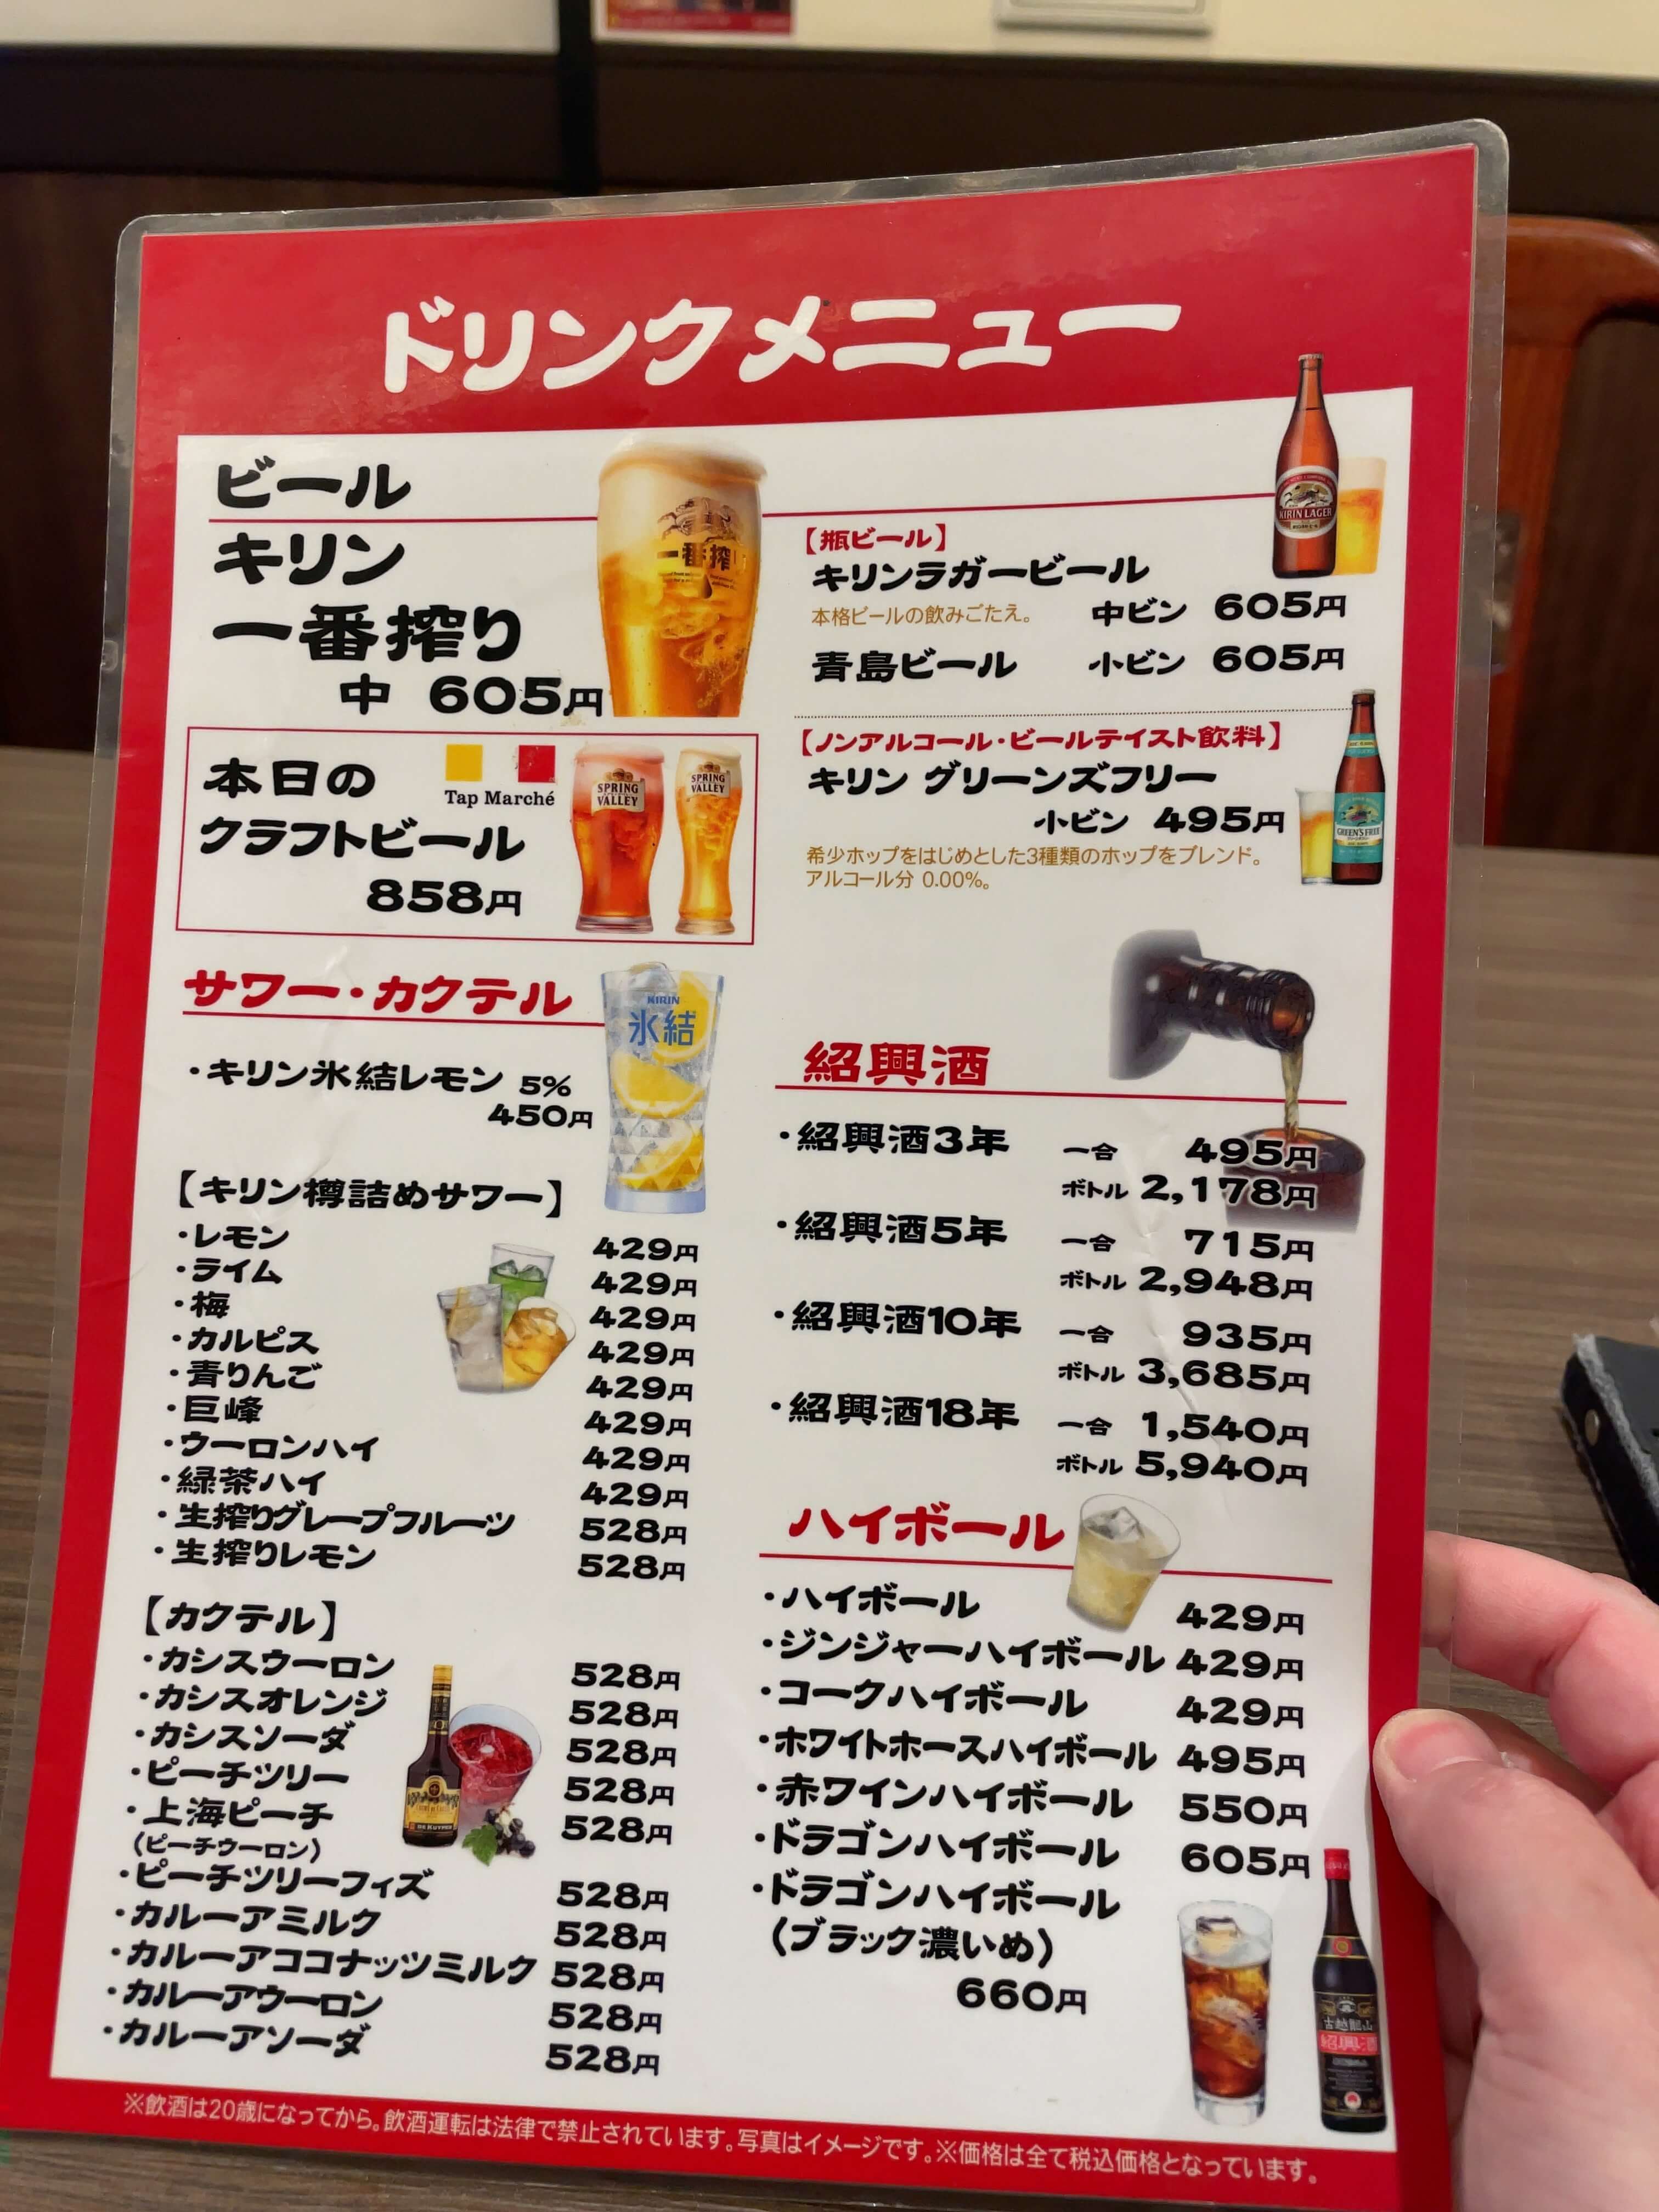 ドリンクメニュー
ビール
キリン
一番搾り
中 605円
一番搾り
本日の
クラフトビール
858円
Tap Marché
SPRING
VALLEY
SPRING
VALLEY
【瓶ビール】
キリンラガービール
本格ビールの飲みごたえ。 中ビン 605円
青島ビール 小ビン 605円
KIRIN LAGER
【ノンアルコール・ビールテイスト飲料】
キリン グリーンズフリー
小ビン 495円
希少ホップをはじめとした3種類のホップをブレンド。
アルコール分 0.00%。
GREEN'S FREE
サワー・カクテル
・キリン氷結レモン 5%
450円
KIRIN
氷結
【キリン樽詰めサワー】
・レモン 429円
・ライム 429円
・梅 429円
・カルピス 429円
・青りんご 429円
・巨峰 429円
・ウーロンハイ 429円
・緑茶ハイ 429円
・生搾りグレープフルーツ 528円
・生搾りレモン 528円
【カクテル】
・カシスウーロン 528円
・カシスオレンジ 528円
・カシスソーダ 528円
・ピーチツリー 528円
・上海ピーチ 528円
(ピーチウーロン)
・ピーチツリーフィズ 528円
・カルーアミルク 528円
・カルーアココナッツミルク 528円
・カルーアウーロン 528円
・カルーアソーダ 528円
DE KUYPER
紹興酒
・紹興酒3年 一合 495円
ボトル 2,178円
・紹興酒5年 一合 715円
ボトル 2,948円
・紹興酒10年 一合 935円
ボトル 3,685円
・紹興酒18年 一合 1,540円
ボトル 5,940円
ハイボール
・ハイボール 429円
・ジンジャーハイボール 429円
・コークハイボール 429円
・ホワイトホースハイボール 495円
・赤ワインハイボール 550円
・ドラゴンハイボール 605円
・ドラゴンハイボール
(ブラック濃いめ)
660円
古越龍山
紹興酒
※飲酒は20歳になってから。飲酒運転は法律で禁止されています。写真はイメージです。※価格は全て税込価格となっています。